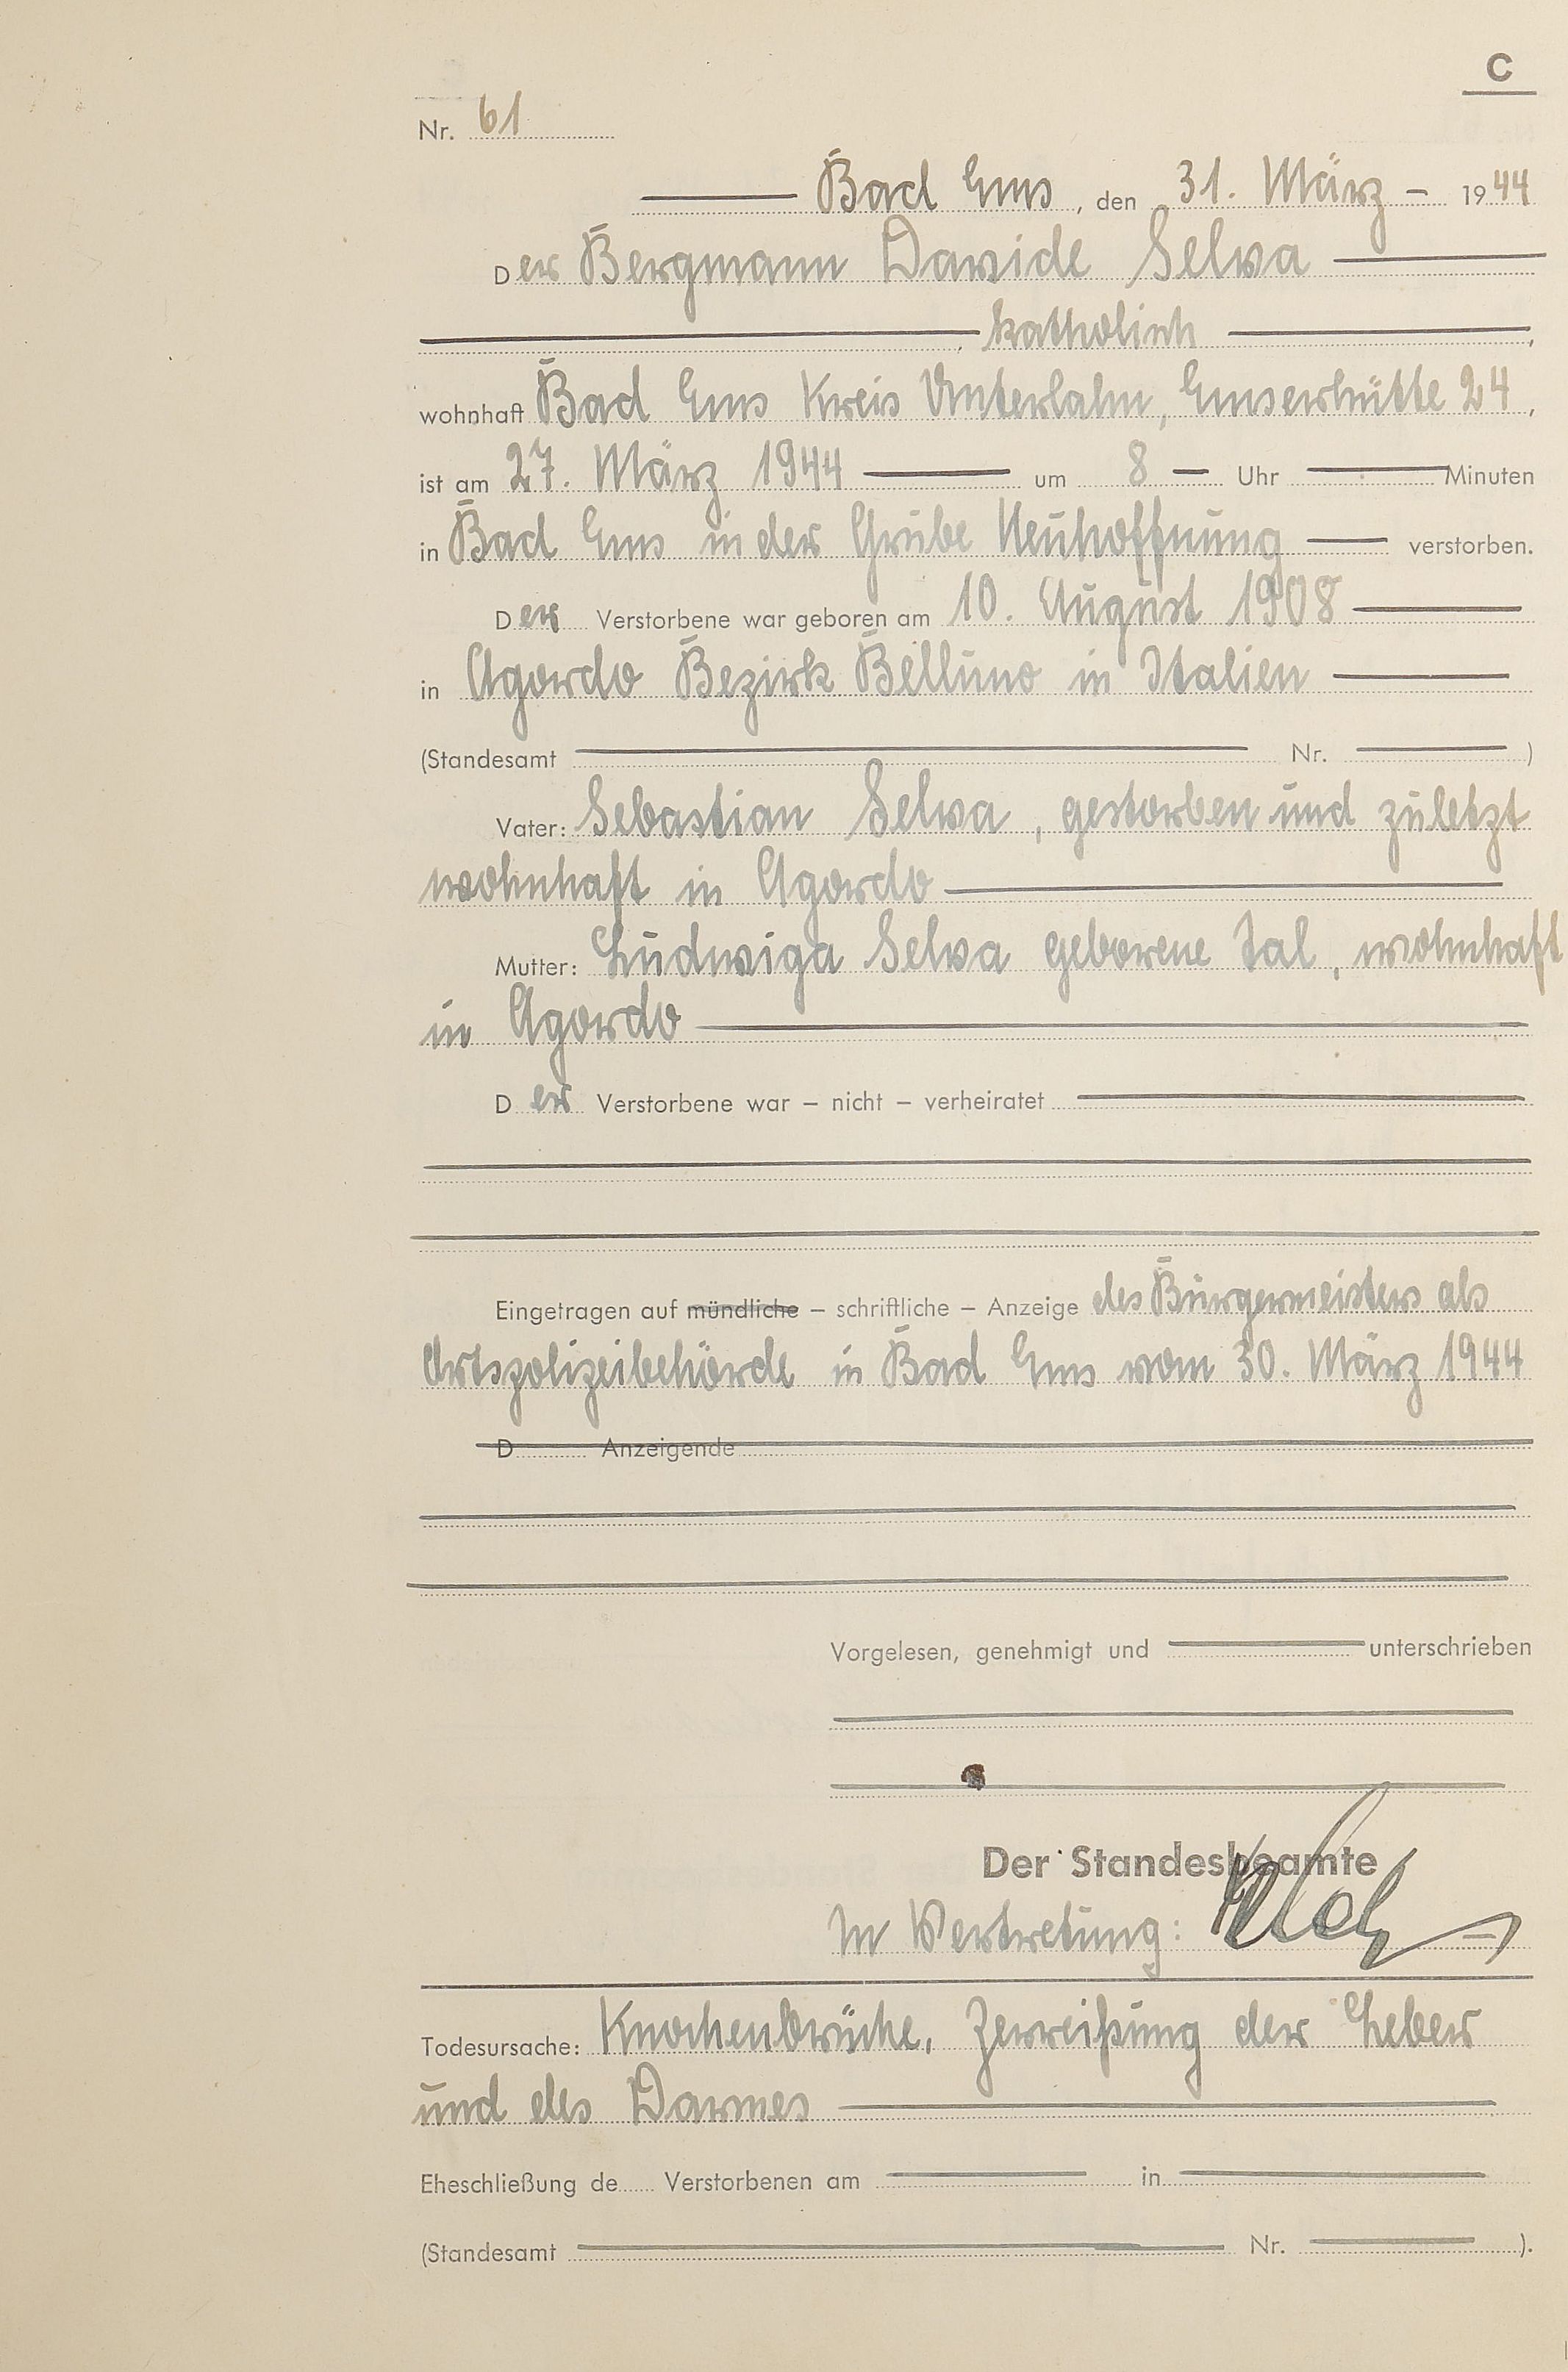 C
Nr. 61
Bad Ems, den 31. März 1944
Der Bergmann Davide Selva
, katholisch,
wohnhaft Bad Ems Kreis Unterlahn, Emserhütte 24,
ist am 27. März 1944 um 8 Uhr Minuten
in Bad Ems in der Grube Neuhoffnung verstorben.
Der Verstorbene war geboren am 10. August 1908
in Agordo Bezirk Belluno in Italien
(Standesamt Nr. )
Vater: Sebastian Selva, gestorben und zuletzt
wohnhaft in Agordo
Mutter: Ludwiga Selva geborene Tal, wohnhaft
in Agordo
Der Verstorbene war – nicht – verheiratet
Eingetragen auf mündliche – schriftliche – Anzeige des Bürgermeisters als
Ortspolizeibehörde in Bad Ems vom 30. März 1944
D Anzeigende
Vorgelesen, genehmigt und unterschrieben
Der Standesbeamte
In Vertretung:
Todesursache: Knochenbrüche, Zerreißung der Leber
und des Darmes
Eheschließung de Verstorbenen am in
(Standesamt Nr. ).